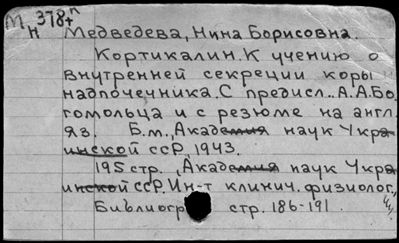 М 378 н
Н Медведева, Нина Борисовна.
Кортикалин. К учению о
внутренней секреции коры
надпочечника. С предисл.. А.А.Бо
гомольца и с резюме на англ.
яз. Б.м., Академия наук Укра
инской ССР, 1943.
195 стр. , (Академия наук Укра
инской ССР. Ин-т клинич. физиолог.,
Библиогр стр. 186-191